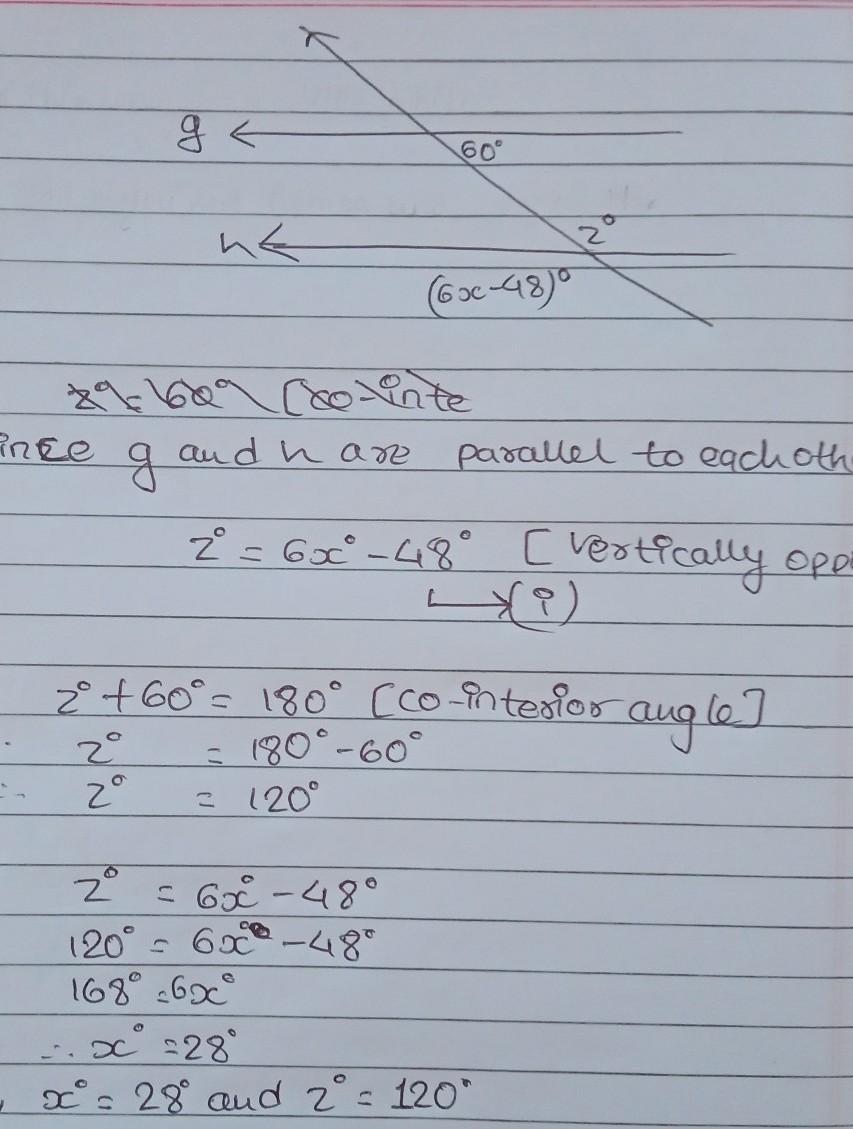 g
60°
z°
h
(6x-48)°
z°=60° [co-inte
ince g and h are parallel to each oth
z° = 6x° - 48° [vertically opp
↳(i)
z° + 60° = 180° [co-interior angle]
z° = 180° - 60°
∴ z° = 120°
z° = 6x° - 48°
120° = 6x° - 48°
168° = 6x°
∴ x° = 28°
, x° = 28° and z° = 120°